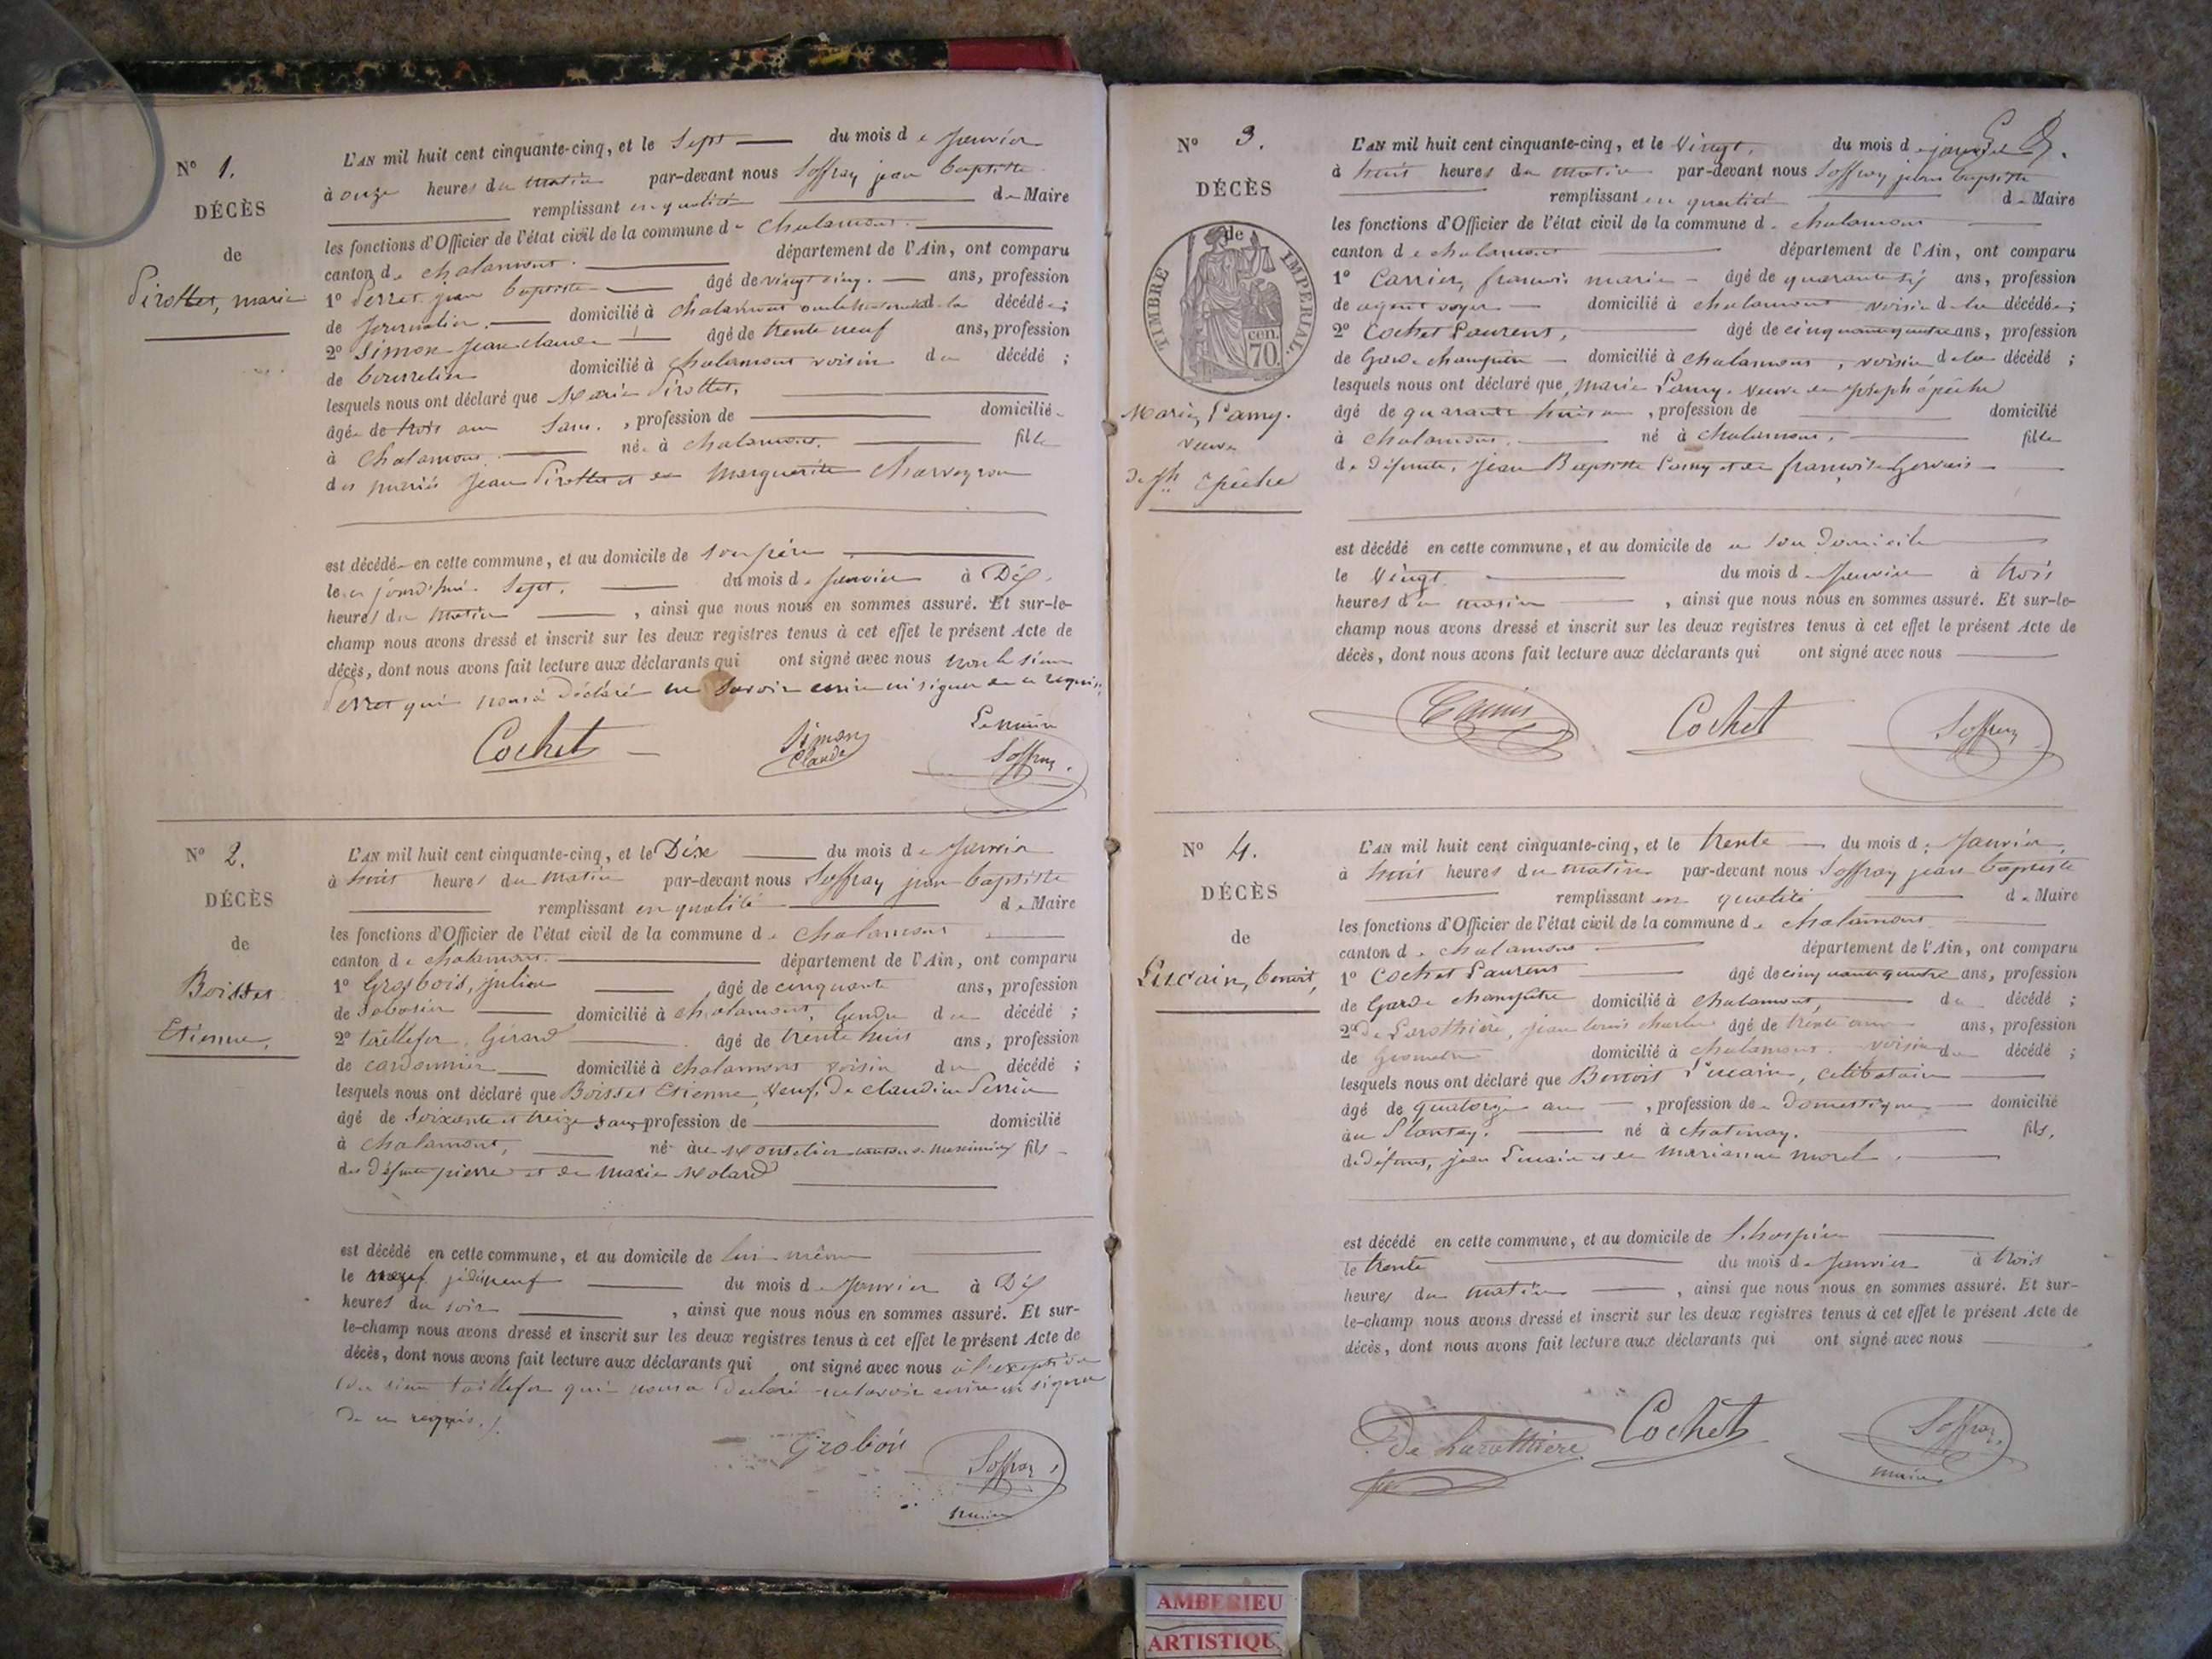 N° 1.
DÉCÈS
de
Pirollet, marie
L'AN mil huit cent cinquante-cinq, et le Sept du mois de Janvier
à onze heures du matin par-devant nous Soffray jean baptiste
remplissant en qualité de Maire
les fonctions d'Officier de l'état civil de la commune de Chalamont
canton de chalamont. département de l'Ain, ont comparu
1° Perret jean baptiste âgé de vingt cinq. ans, profession
de journalier. domicilié à chalamont oncle maternel de la décédée;
2° Simon jean claude âgé de trente neuf ans, profession
de bourrelier domicilié à chalamont voisin du décédé;
lesquels nous ont déclaré que Marie Pirollet,
âgée de trois ans Sans, profession de domiciliée
à Chalamont. née à chalamont. fille
des mariés Jean Pirollet et de Marguerite Charveyron
est décédée en cette commune, et au domicile de son père
le jourd'hui Sept. du mois de janvier à Dix
heures du matin, ainsi que nous nous en sommes assuré. Et sur-le-
champ nous avons dressé et inscrit sur les deux registres tenus à cet effet le présent Acte de
décès, dont nous avons fait lecture aux déclarants qui ont signé avec nous non le sieur
Perret qui nous a Déclaré ne savoir écrire ni signer de ce requis.
Le maire
Cochet Simon Claude Soffray
N° 2.
DÉCÈS
de
Boisset
Etienne,
L'AN mil huit cent cinquante-cinq, et le Dix du mois de Janvier
à huit heures du matin par-devant nous Soffray jean baptiste
remplissant en qualité de Maire
les fonctions d'Officier de l'état civil de la commune de Chalamont
canton de chalamont. département de l'Ain, ont comparu
1° Grosbois, julien âgé de cinquante ans, profession
de Sabotier domicilié à chalamont, Gendre du décédé;
2° taillefer, Girard âgé de trente huit ans, profession
de cordonnier domicilié à chalamont voisin du décédé;
lesquels nous ont déclaré que Boisset Etienne, Veuf, de claudine Perrin
âgé de Soixante et treize Sans profession de domicilié
à chalamont, né au Montelier canton de meximieux fils
des Défunts pierre et de Marie Molard
est décédé en cette commune, et au domicile de lui même
le neuf du mois de Janvier à Dix
heures du soir, ainsi que nous nous en sommes assuré. Et sur-
le-champ nous avons dressé et inscrit sur les deux registres tenus à cet effet le présent Acte de
décès, dont nous avons fait lecture aux déclarants qui ont signé avec nous à l'exception
du sieur taillefer qui nous a Déclaré ne savoir écrire ni signer
de ce requis.
Grobois Soffray
maire
N° 3.
DÉCÈS
de
TIMBRE IMPERIAL.
70 cen.
Marie, Lamy.
veuve
de Jh épêche
L'AN mil huit cent cinquante-cinq, et le Vingt. du mois de janvier
à huit heures du matin par-devant nous Soffray jean baptiste
remplissant en qualité de Maire
les fonctions d'Officier de l'état civil de la commune de chalamont
canton de chalamont département de l'Ain, ont comparu
1° Carrier, françois marie âgé de quarante six ans, profession
de agent voyer domicilié à chalamont voisin de la décédée;
2° Cochet Laurent, âgé de cinquante quatre ans, profession
de Garde champêtre domicilié à chalamont, voisin de la décédé;
lesquels nous ont déclaré que, Marie Lamy. Veuve de Joseph épêche
âgé de quarante huit ans, profession de domicilié
à chalamont. né à chalamont. fille
de Défunts, Jean Baptiste Lamy et de françoise Gervais
est décédé en cette commune, et au domicile de en son Domicile
le Vingt du mois de Janvier à trois
heures du matin, ainsi que nous nous en sommes assuré. Et sur-le-
champ nous avons dressé et inscrit sur les deux registres tenus à cet effet le présent Acte de
décès, dont nous avons fait lecture aux déclarants qui ont signé avec nous
Cochet Soffray
N° 4.
DÉCÈS
de
Lucain, benoit,
L'AN mil huit cent cinquante-cinq, et le trente du mois de Janvier,
à huit heures du matin par-devant nous Soffray jean baptiste
remplissant en qualité de Maire
les fonctions d'Officier de l'état civil de la commune de chalamont
canton de chalamont département de l'Ain, ont comparu
1° Cochet Laurent âgé de cinquante quatre ans, profession
de Garde champêtre domicilié à chalamont, du décédé;
2° de Larothière, jean louis charles âgé de trente ans, profession
de Géomètre domicilié à chalamont. voisin du décédé;
lesquels nous ont déclaré que Benoit Lucain, célibataire
âgé de quatorze ans, profession de Domestique domicilié
au Plantay. né à chatenay. fils,
de Défunt, jean Lucain et de marianne morel.
est décédé en cette commune, et au domicile de l'hospice
le trente du mois de janvier à trois
heures du matin, ainsi que nous nous en sommes assuré. Et sur-
le-champ nous avons dressé et inscrit sur les deux registres tenus à cet effet le présent Acte de
décès, dont nous avons fait lecture aux déclarants qui ont signé avec nous
De Larothiere Cochet Soffray
maire
AMBERIEU
ARTISTIQU